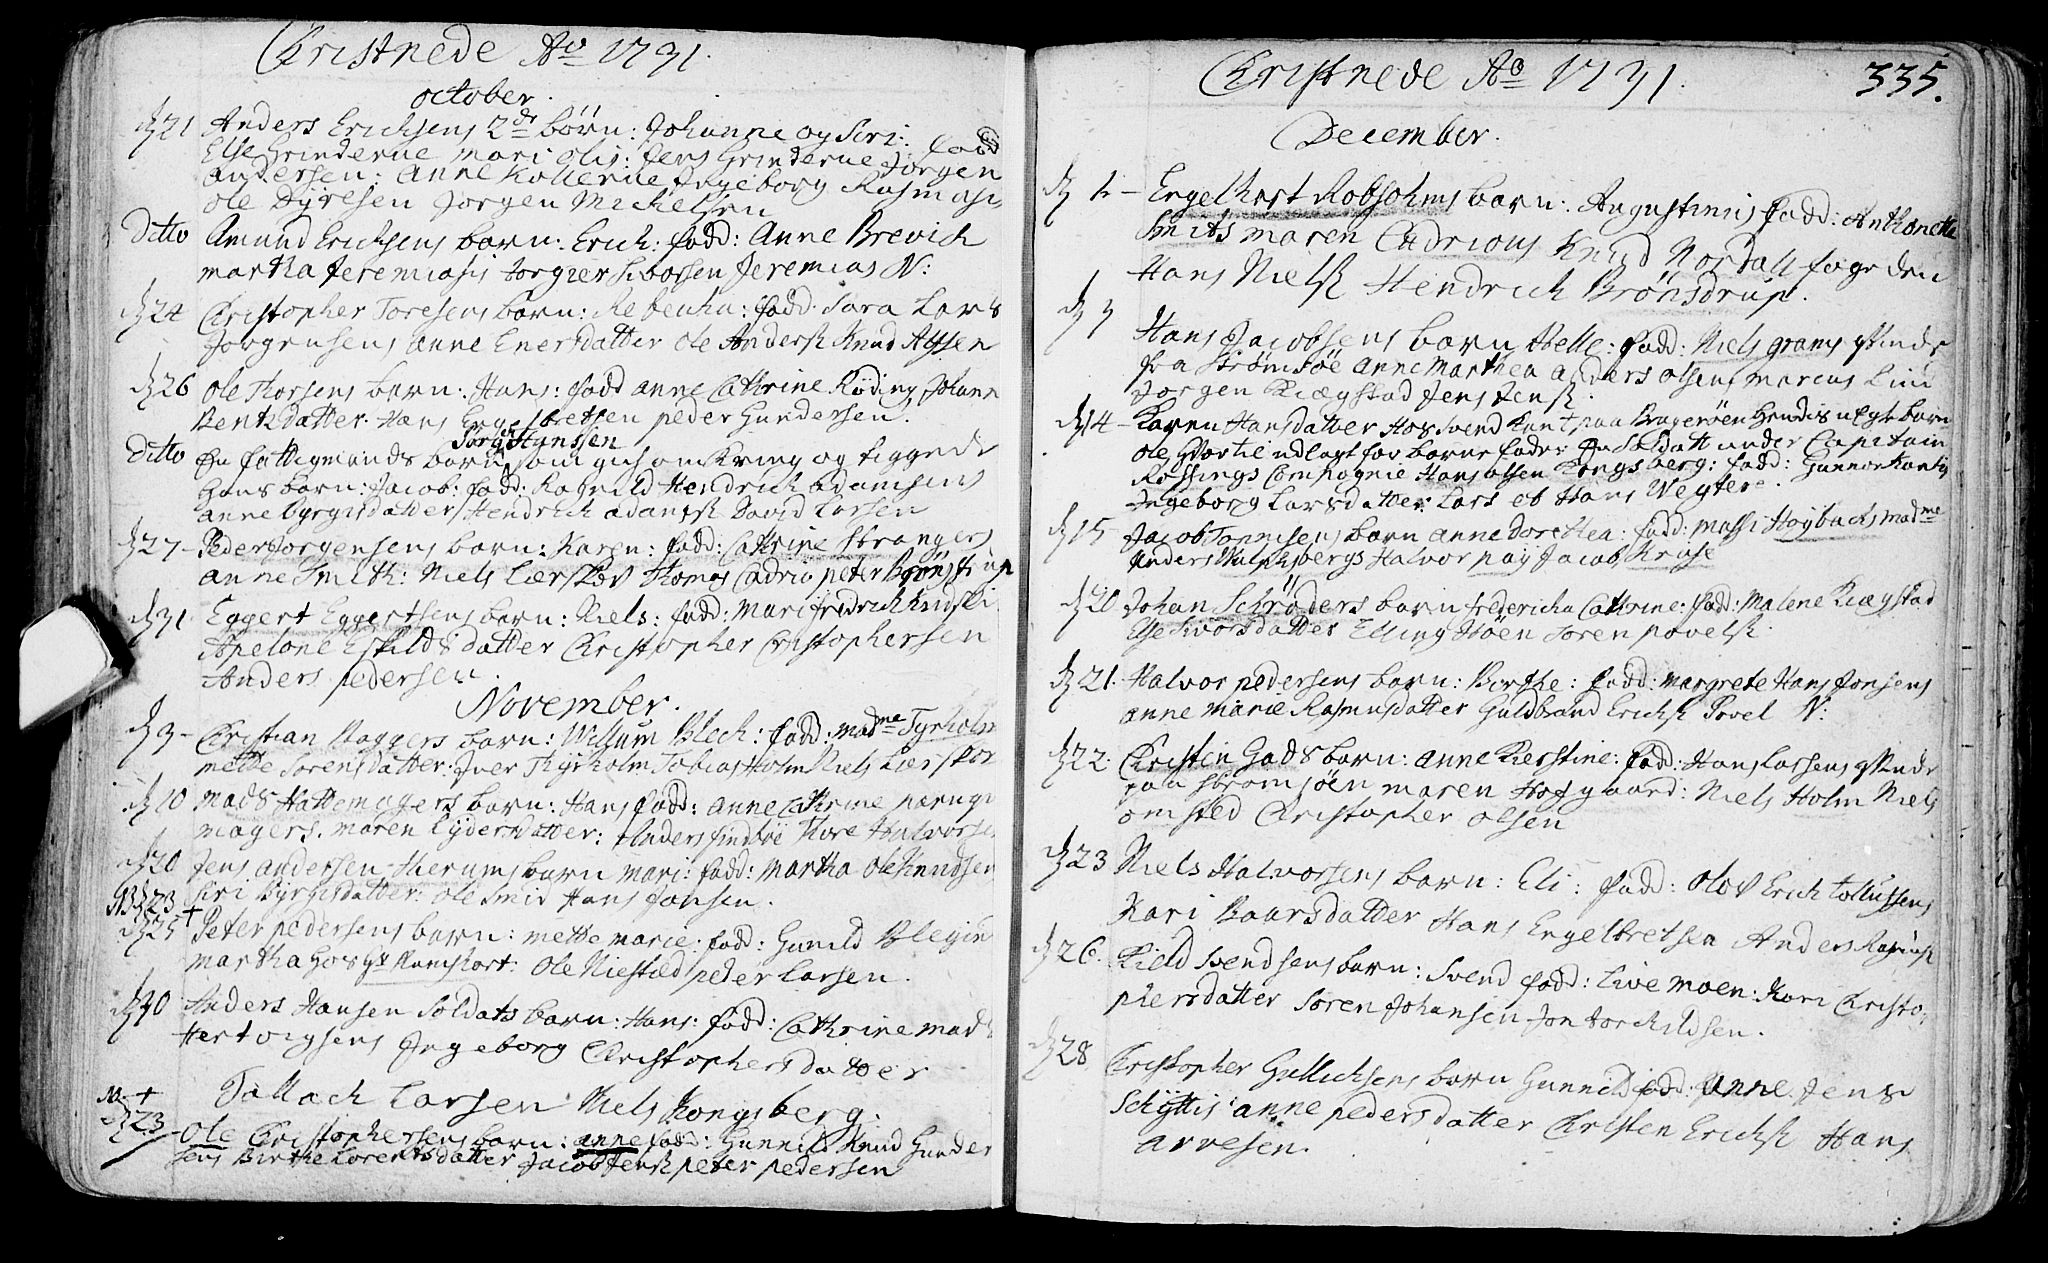 Christnede Ao 1731.
october.
d 21 Anders Erichsens 2de børn: Johanne og Siri: fadd
Else Grinderne mari olis: Jens Grinderne Jørgen
andersen: Anne Kollerne Ingeborg Rasmusis
ole Dyresen Jørgen Michelsen
Ditto Amund Erichsens barn: Erich: fadd: Anne Brevich
martha Jeremiasis Jeremias N:
d 24 Christopher Toresens barn: Rebecha: fadd: Sara Lars
Jørgensens anne Enersdatter ole Andersk Knud
d 26 ole Thorsens barn: Hans: fadd anne Cathrine Røding Johann
Bentzdatter Hans Engelbretsen peder Gundersen.
Jørg Hanssen
Ditto En fattigmands barn som gich omkring og tiggede
Hans barn: Jacob: fadd: Ragnild Hendrich adamsens
anne Byrgisdatter Hendrich adamsk David Larsen
d 27 - Peder Jørgensens barn: Karen: fadd: Cathrine strangers
anne Smith: Niels Lærskov Thomas Cadrio peter Brønstrup
d 31 Eggert Eggertsens barn: Niels: fadd: mari fredrich
Apelone Eskilds datter Christopher Christophersen
Anders pedersen.
November.
d 3 - Christian barn: Willum Blech: fadd: madme Tyrholm
mette Sørensdatter: Iver Thyrholm Tobias Holm Niels Lærskov
d 10 mads Hattemagers barn: Hans fadd: anne Cathrine
magers. maren datter: Anders Tore Halvorsen
d 20 Jens andersen barn mari: fadd: Martha ole Knudsen
NB d 23 + Siri Byrgisdatter: ole Smid Hans Jonsen.
d 25 Peter pedersens barn: mette marie: fadd: Gunild
martha hos Ole Niestæd peder Larsen.
d 30 Anders Hansen Soldats barn: Hans: fadd: Cathrine mads
Hertvigsens Ingeborg Christophersdatter
Tallach Larsen Niels Kongsberg.
NB +
d 23 - Ole Christophersens barn: anne fadd: Gunnild Knud Gunder
sens Birthe Lorentsdatter Jacob Jensk peter pedersen
Christnede Ao 1731. 335.
December.
d 2 - Engelhart Robsohns barn: Augustinus fadd: Anthonette
Smits maren Cadrious Knud Nordall fogeden
Hans Nielsk Hendrich Brønsdrup.
d 3 Hans Jacobsens barn Helle: fadd: Niels grams qvinde
fra Strømsøe Anne Marthea anders olsens marcus Lind
Jørgen Kiægstad Jens Jensk.
d 14 - Karen Hansdatter Hos Svend paa Bragerøen Hendis uægte barn
ole Hvortil udlagt for barne fader En Soldatt under Capitain
Røssings Compagnie Hans olsen Kongsberg: fadd: Gunnor
Ingeborg Larsdatter Lars og Hans Wegter.
d 15 Jacob Tønnisens barn anne Dorethea: fadd: Massi Høybachs madme
Anders Halvor paj Jacob Kruse
d 20 Johan Schrøders barn fredericha Cathrine: fadd: Malene Kiægstad
Else Elling Høen Søren povelsk.
d 21. Halvor pedersens barn: Birthe: fadd: Margrete Hans Jonsens
anne Marie Rasmusdatter Guldbrand Erichsk Povel N:
d 22. Christen Gads barn: anne Kierstine: fadd: Hans Lassens qvinde
paa Strømsøen maren Hofgaard: Niels Holm Niels
omsted Christopher olsen
d 23 Niels Halvorsens barn: Eli: fadd: olof Erich
Kari Baarsdatter Hans Engelbretsen Anders Rasmusk
d 26. Kield Svendsens barn: Svend fadd: Live moen: Kari Christo,
phersdatter Søren Johansen Jon Torchildsen.
d 28 Christopher Gullichsens barn Gunnild fadd: Anne Jens
Schyttis anne pedersdatter Christen Erichsk Hans
arvesen.